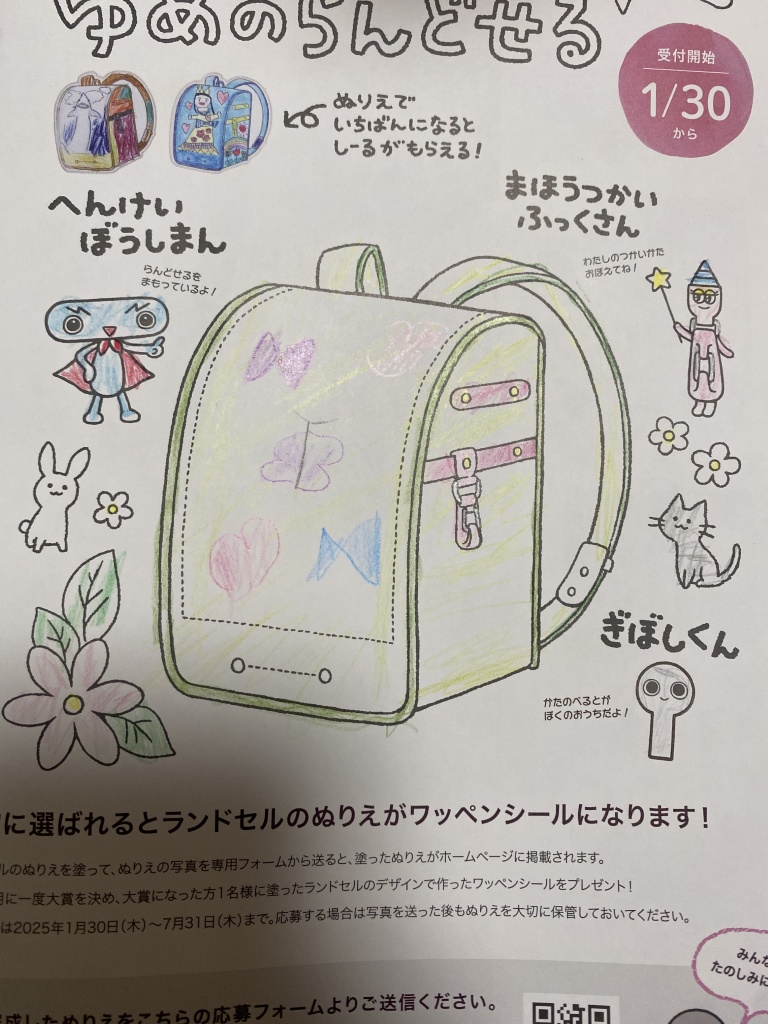 ゆめのらんどせる
受付開始
1/30
から
ぬりえで
いちばんになると
しーるがもらえる!
へんけい
ぼうしまん
らんどせるを
まもっているよ!
まほうつかい
ふっくさん
わたしのつかいかた
おぼえてね!
ぎぼしくん
かたのべるとが
ぼくのおうちだよ!
に選ばれるとランドセルのぬりえがワッペンシールになります!
ルのぬりえを塗って、ぬりえの写真を専用フォームから送ると、塗ったぬりえがホームページに掲載されます。
月に一度大賞を決め、大賞になった方1名様に塗ったランドセルのデザインで作ったワッペンシールをプレゼント!
は2025年1月30日(木)〜7月31日(木)まで。応募する場合は写真を送った後もぬりえを大切に保管しておいてください。
みんな
たのしみに
成したぬりえをこちらの応募フォームよりご送信ください。